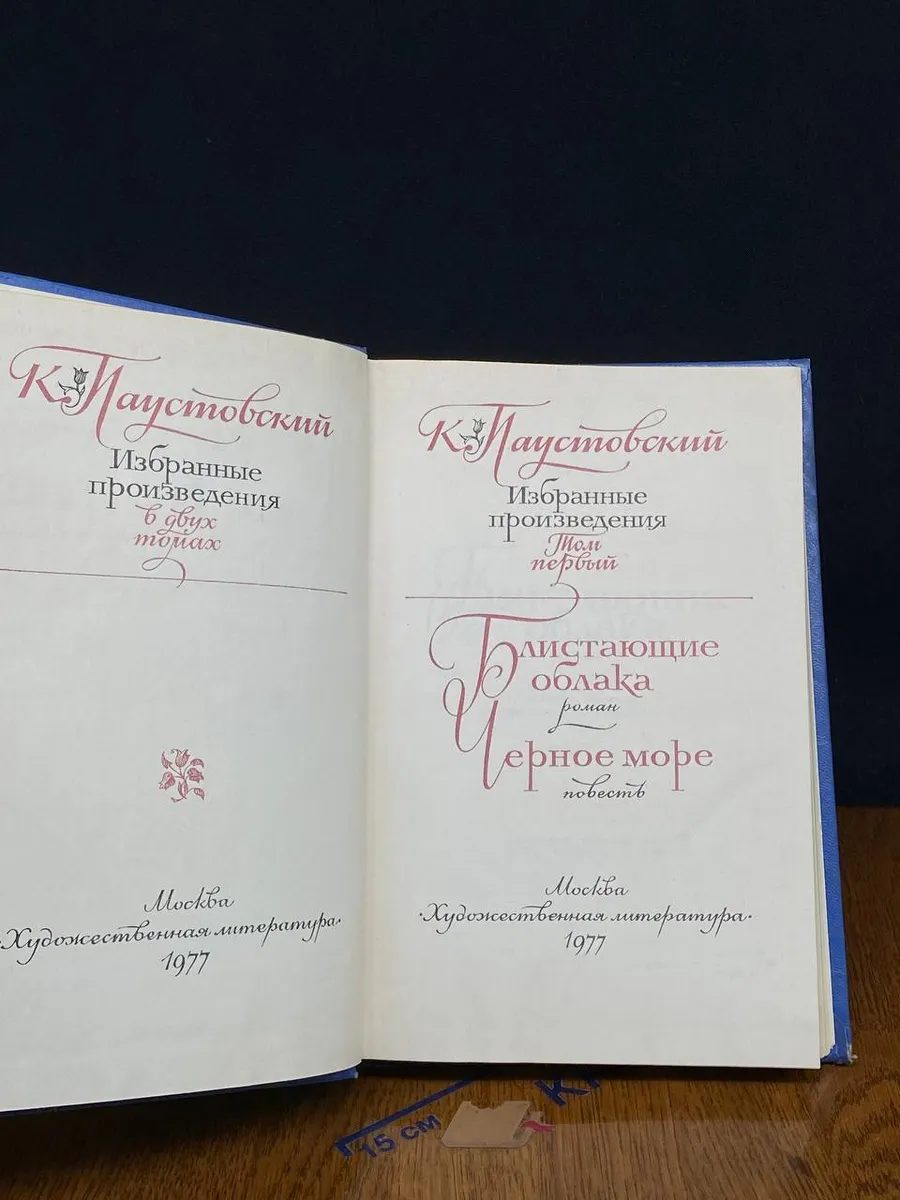 К. Паустовский
Избранные
произведения
в двух
томах
Москва
·Художественная литература·
1977
К. Паустовский
Избранные
произведения
Том
первый
Блистающие
облака
роман
Черное море
повесть
Москва
·Художественная литература·
1977
15 см